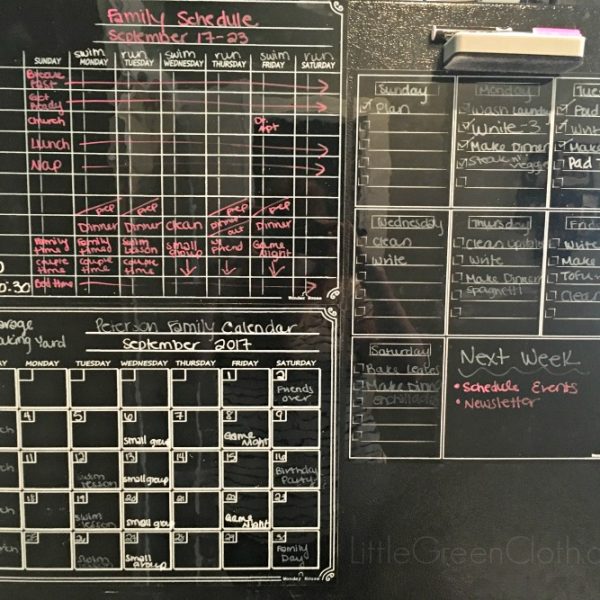 Family Schedule
September 17-23
swim run swim run swim run
SUNDAY MONDAY TUESDAY WEDNESDAY THURSDAY FRIDAY SATURDAY
Break
fast
Get
Ready
Church
Dr.
Apt
Lunch
Nap
prep prep prep prep
Dinner Dinner Clean Dinner out Dinner
Family time Family time Swim Lesson Small group w/ friend Game Night
Couple time Couple time Couple time
0:30 Bed time
Wonder House
Peterson Family Calendar
Yard September 2017
MONDAY TUESDAY WEDNESDAY THURSDAY FRIDAY SATURDAY
1 2
Friends over
4 5 6 7 8 9
small group Game Night
11 12 13 14 15 16
Swim Lesson small group Birthday Party
18 19 20 21 22 23
Swim Lesson small group Game Night
Swim Small Group Family Day
Sunday
Plan
Monday
Wash Laundry
Write -3
Make Dinner
Steak n' veggies
Tues
Pad
Writ
Make
Pad T
Wednesday
Clean
Write
Thursday
Clean
Write
Make Dinner
spaghetti
Frid
Write
Make
Tofu
Clean
Saturday
Bake
Make Dinne
enchiladas
Next Week
• Schedule Events
• Newsletter
LittleGreenCloth.c